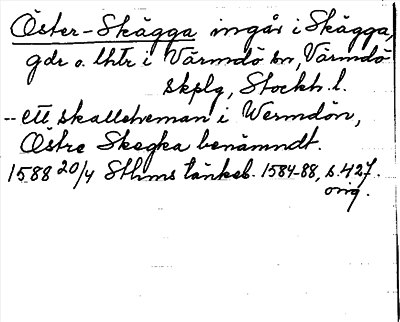 Öster-Skägga ingår i Skägga,
gdr o. lhtr i Värmdö sn, Värmdö
skplg, Stockh. l.
-- ett skattehemman i Wermdön,
Östre Skegka benämndt.
1588 20/4 Sthms tänkeb. 1584-88, s. 427.
orig.